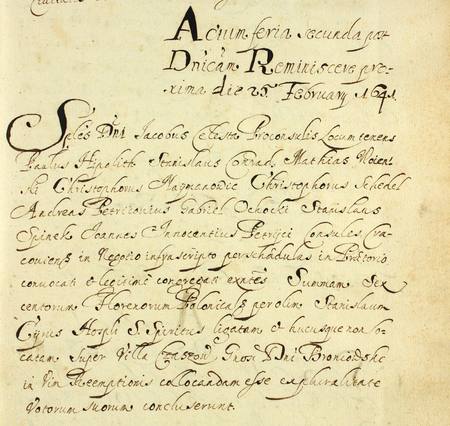 Actum feria secunda post
Dnicam Reminiscere pro-
xima die 25 February 1641.
Sples Dni Jacobus Celesta Proconsulis Locum tenens
Paulus Hipolith Stanislaus Conrad Mathias Woien
ski Christophorus Naymanowic Christophorus Schedel
Andreas Petricouius Gabriel Ochocki Stanislaus
Spinek Joannes Innocentius Petrijci Consules Cra-
couienses in Negotio infrascripto per schædulas in Prætorio
conuocati et legitime congregati exntes Summam Sex
centorum Florenorum Polonicals per olim Stanislaum
Cyrus Hospli S. Spiritus legatam et hucusque non lo-
catam super Villa Gnosi Dni
in Vim Reemptionis collocandam esse ex pluralitate
Votorum suorum concluserunt.